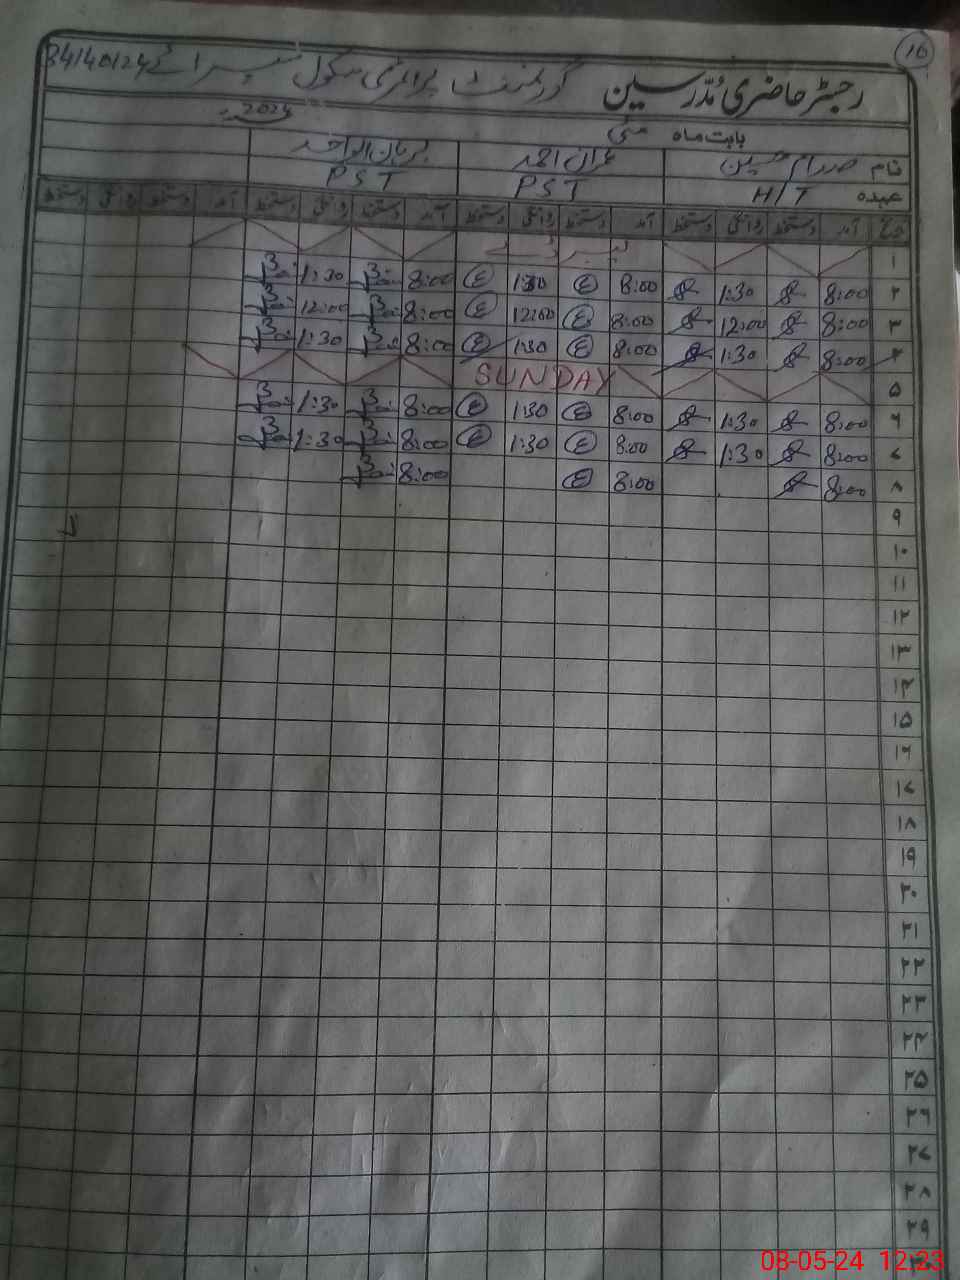 16
رجسٹر حاضری مُدرسین گورنمنٹ پرائمری سکول
بابت ماہ مئی 2024ء
نام صدام حسین عمران احمد برہان الواحد
عہدہ H/T PST PST
تاریخ آمد دستخط روانگی دستخط آمد دستخط روانگی دستخط آمد دستخط روانگی دستخط آمد دستخط روانگی دستخط
۱
۲ 8:00 1:30 8:00 1:30 8:00 1:30
۳ 8:00 12:00 8:00 12:00 8:00 12:00
۴ 8:00 1:30 8:00 1:30 8:00 1:30
۵ SUNDAY
۶ 8:00 1:30 8:00 1:30 8:00 1:30
۷ 8:00 1:30 8:00 1:30 8:00 1:30
۸ 8:00 8:00 8:00
۹
۱۰
۱۱
۱۲
۱۳
۱۴
۱۵
۱۶
۱۷
۱۸
۱۹
۲۰
۲۱
۲۲
۲۳
۲۴
۲۵
۲۶
۲۷
۲۸
۲۹
08-05-24 12:23